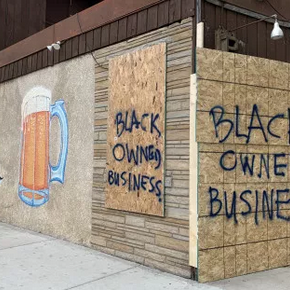 BLACK
OWNED
BUSINESS
BLACK
OWNED
BUSINESS